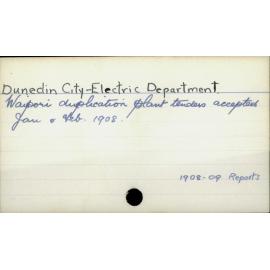 Dunedin City-Electric Department
Waipori duplication plant tenders accepted
Jan & Feb. 1908.
1908-09 Reports